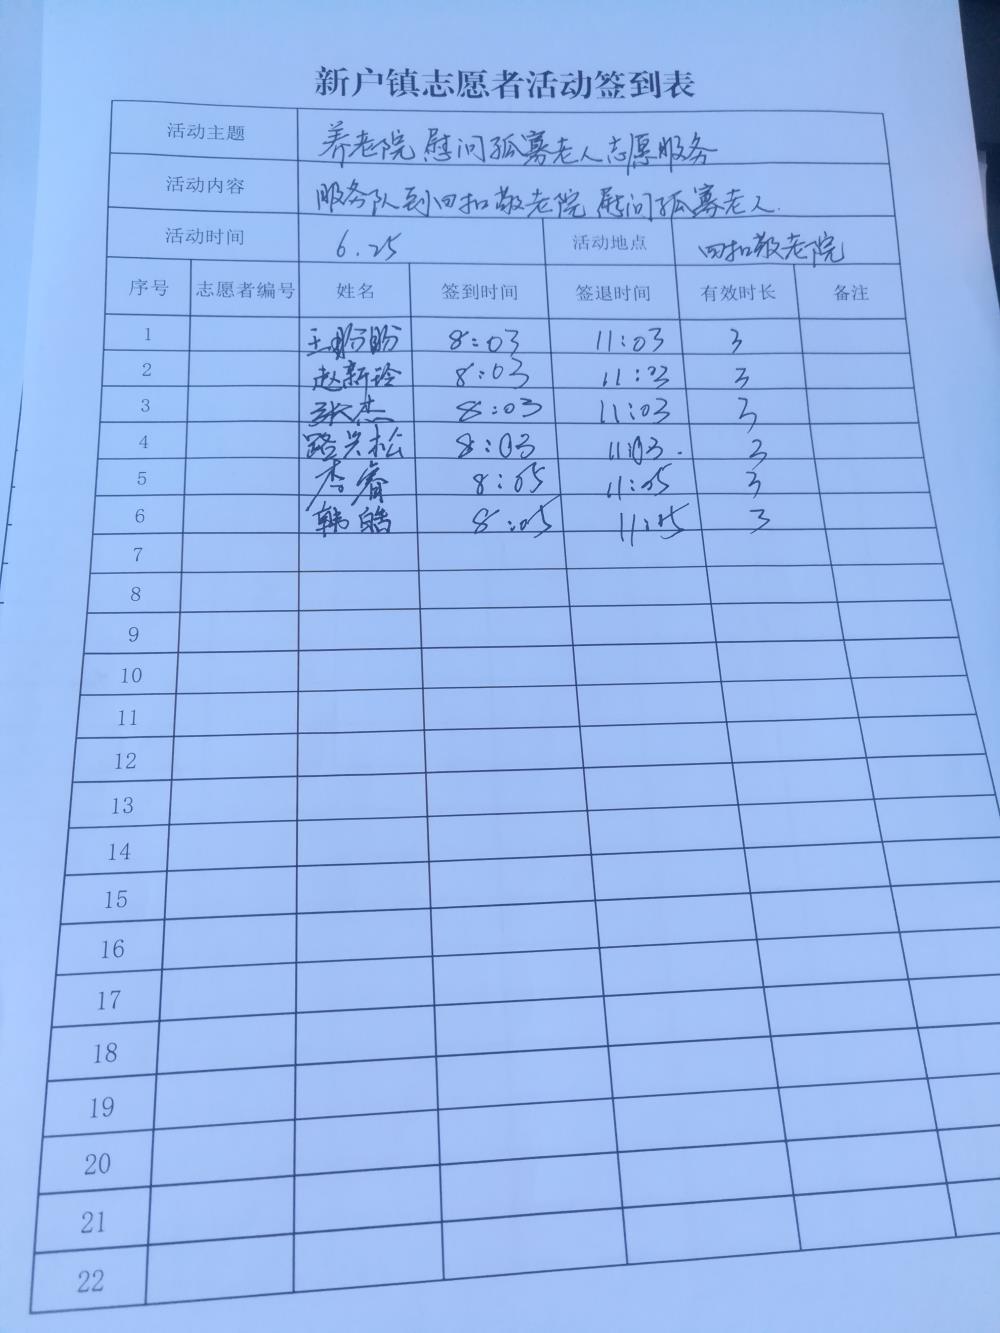 新户镇志愿者活动签到表
活动主题 养老院慰问孤寡老人志愿服务
活动内容 服务队到四扣敬老院慰问孤寡老人.
活动时间 6.25 活动地点 四扣敬老院
序号 志愿者编号 姓名 签到时间 签退时间 有效时长 备注
1 王盼盼 8:03 11:03 3
2 赵新玲 8:03 11:03 3
3 张杰 8:03 11:03 3
4 路兴松 8:03 11:03. 3
5 李睿 8:05 11:05 3
6 韩皓 8:05 11:05 3
7
8
9
10
11
12
13
14
15
16
17
18
19
20
21
22